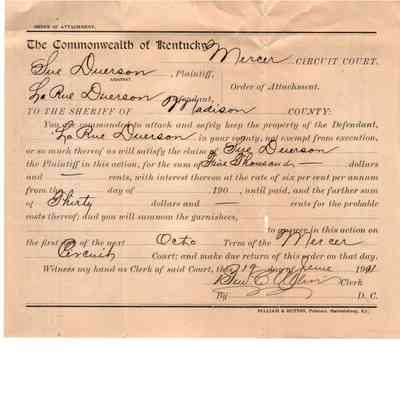 ORDER OF ATTACHMENT.
The Commonwealth of Kentucky, Mercer CIRCUIT COURT.
Sue Duerson, Plaintiff,
AGAINST Order of Attachment.
La Rue Duerson Defendant,
TO THE SHERIFF OF Madison COUNTY:
You are commanded to attach and safely keep the property of the Defendant,
La Rue Duerson in your county, not exempt from execution,
or so much thereof as will satisfy the claim of Sue Duerson
the Plaintiff in this action, for the sum of Five Thousand — dollars
and — cents, with interest thereon at the rate of six per cent per annum
from the day of 190 , until paid, and the further sum
of Thirty dollars and — cents for the probable
costs thereof; and you will summon the garnishees,
to answer in this action on
the first of the next Octo Term of the Mercer
Circuit Court; and make due return of this order on that day.
Witness my hand as Clerk of said Court, the 19 day of June 1901
Clerk
By D. C.